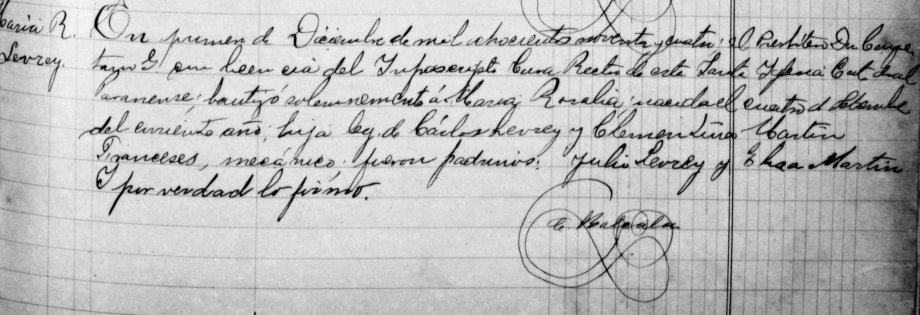 Maria R.
Levrey.
En primero de Diciembre de mil ochocientos noventa y cuatro: el Presbitero Du Caye
tayn G. con licencia del Infrascripto Cura Rector de esta Santa Iglesia Catedral
aranense: bautizó solemnemente á Maria Rosalia: nacida el cuatro de Setiembre
del corriente año, hija leg. de Cárlos Levrey y Clementina Martin
Franceses, mecánico: fueron padrinos: Julio Levrey y Elisa Martin
Y por verdad lo firmo.